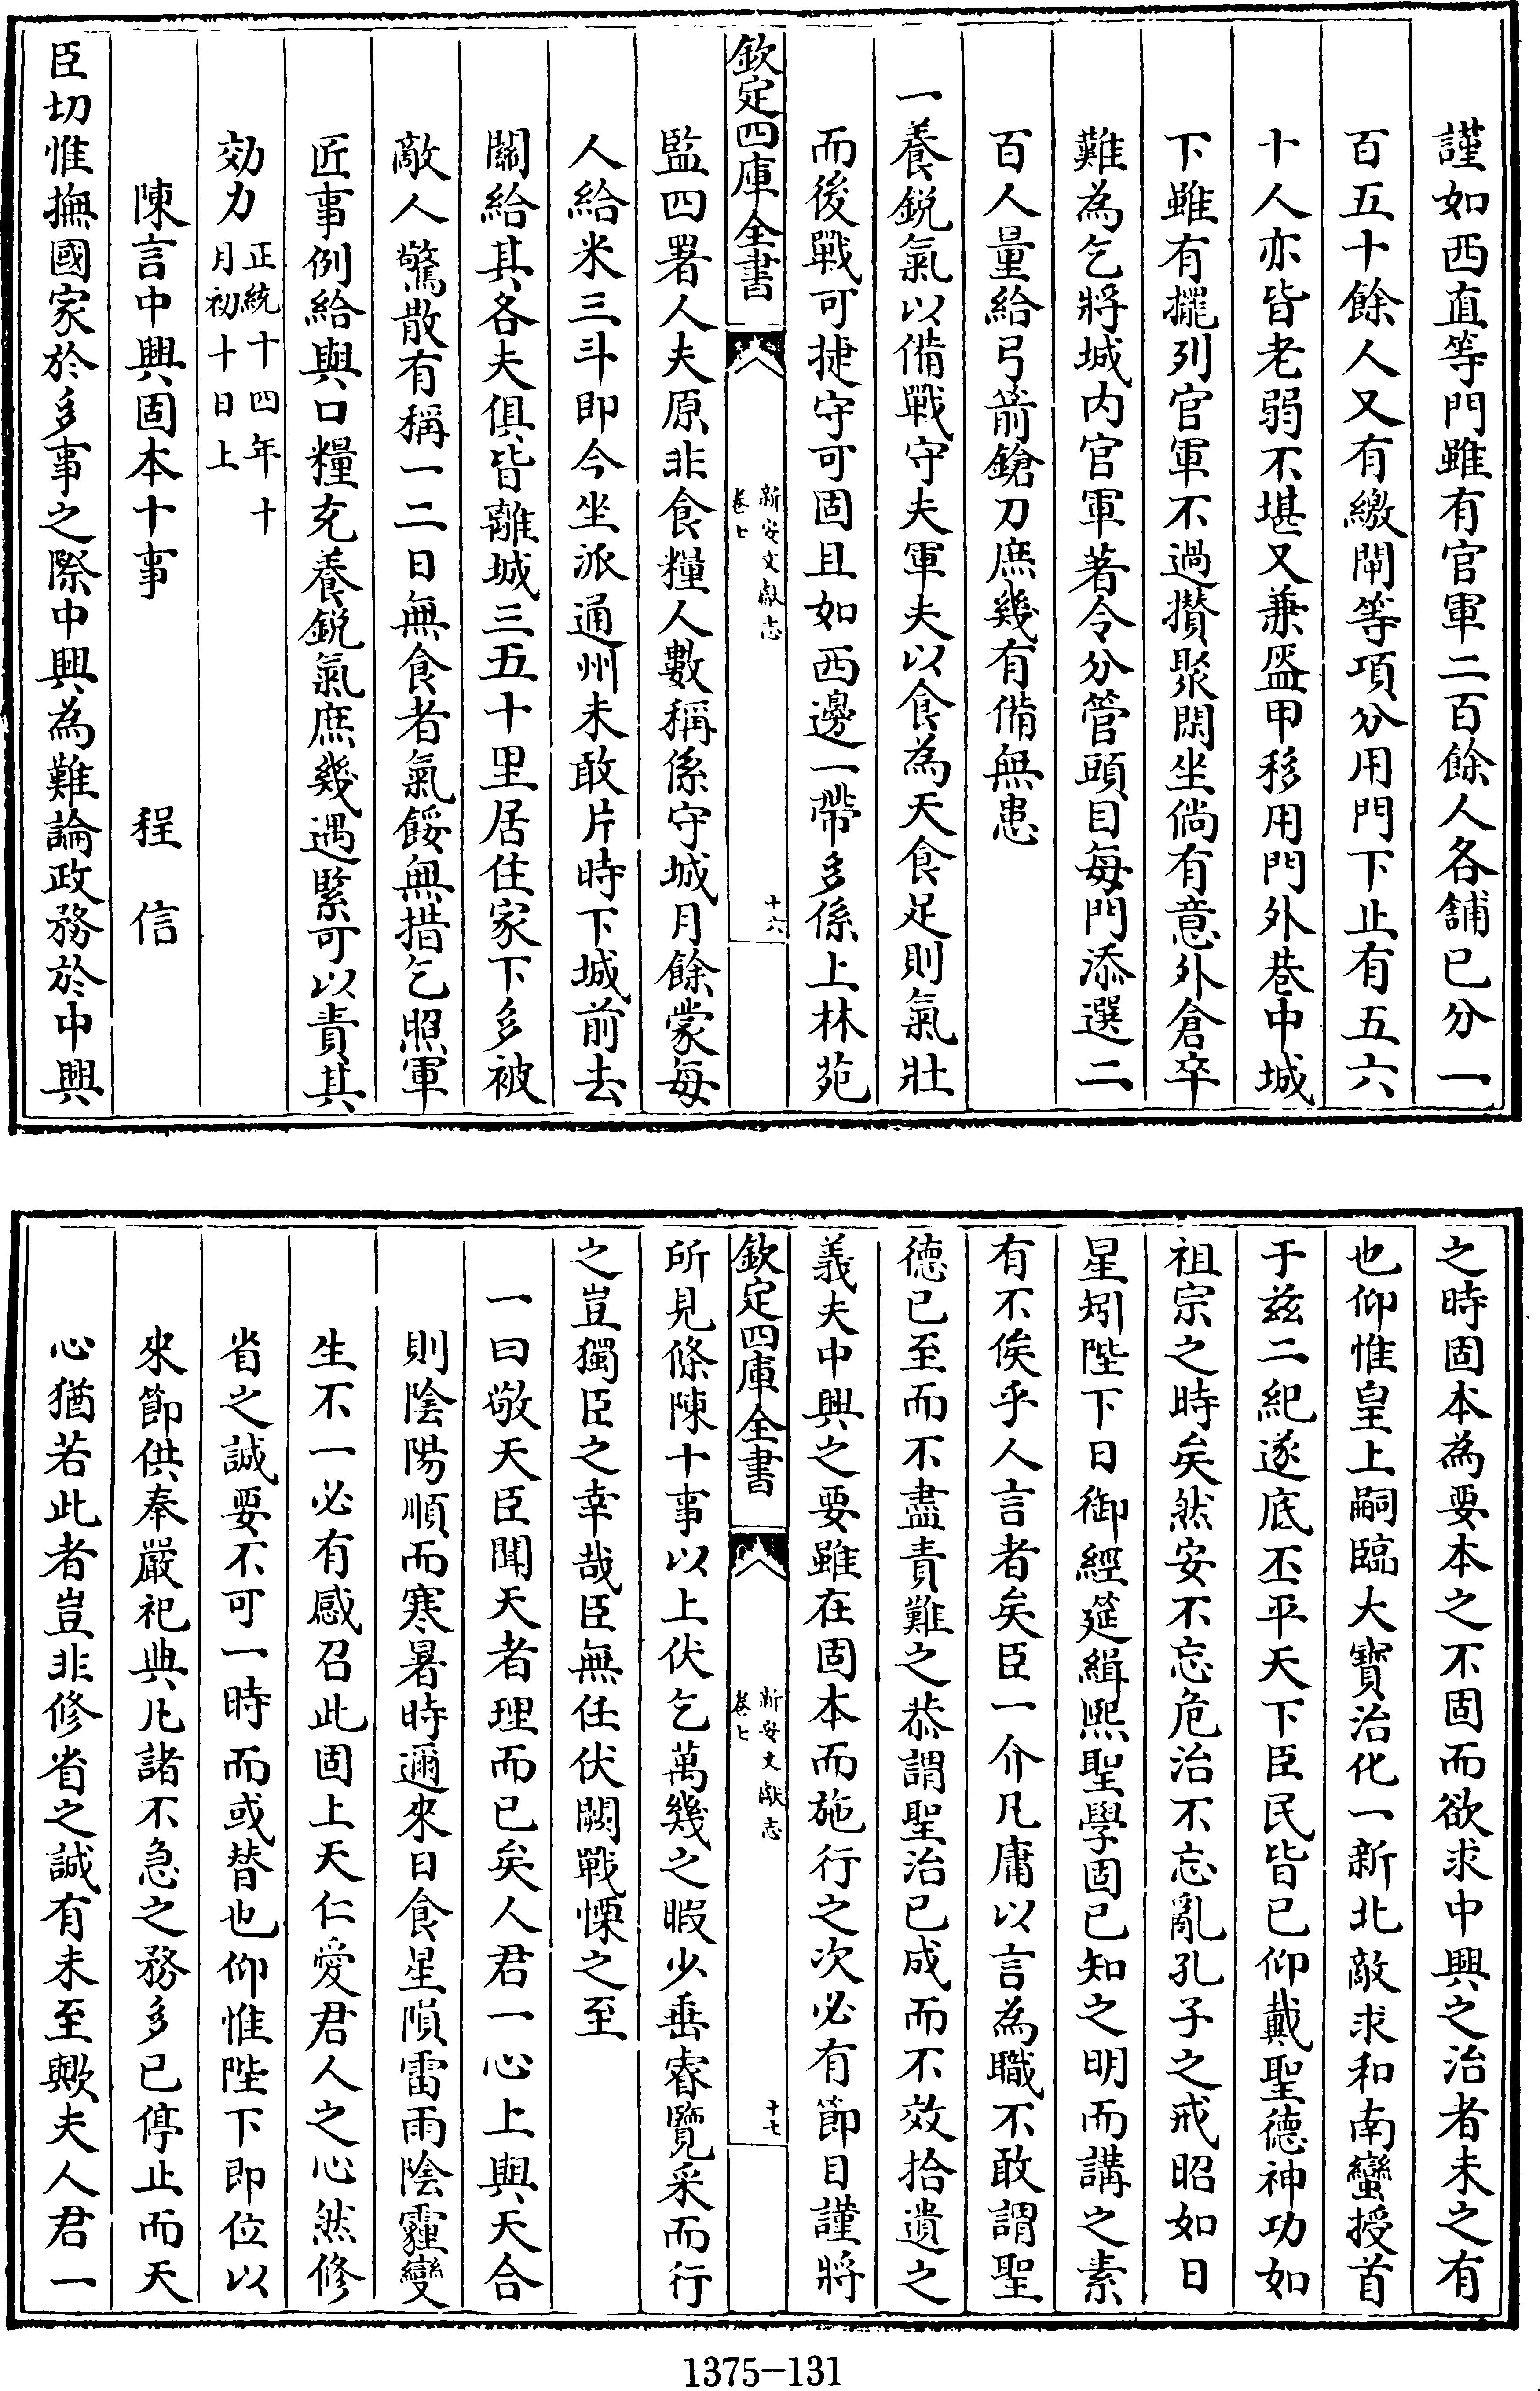 謹如西直等門雖有官軍二百餘人各舖已分一
百五十餘人又有繳閘等項分用門下止有五六
十人亦皆老弱不堪又兼盔甲移用門外巷中城
下雖有擺列官軍不過攅聚閑坐倘有意外倉卒
難為乞將城内官軍著令分管頭目每門添選二
百人量給弓箭鎗刀庶幾有備無患
一養鋭氣以備戰守夫軍夫以食為天食足則氣壯
而後戰可捷守可固且如西邊一帶多係上林苑
欽定四庫全書
新安文獻志
卷七
十六
監四署人夫原非食糧人數稱係守城月餘蒙每
人給米三斗即今坐派通州未敢片時下城前去
關給其各夫俱皆離城三五十里居住家下多被
敵人驚散有稱一二日無食者氣餒無措乞照軍
匠事例給與口糧充養鋭氣庶幾遇緊可以責其
効力正統十四年十
月初十日上
陳言中興固本十事 程信
臣切惟撫國家於多事之際中興為難論政務於中興
之時固本為要本之不固而欲求中興之治者未之有
也仰惟皇上嗣臨大寳治化一新北敵求和南蠻授首
于兹二紀遂底丕平天下臣民皆已仰戴聖德神功如
祖宗之時矣然安不忘危治不忘亂孔子之戒昭如日
星矧陛下日御經筵緝熙聖學固已知之明而講之素
有不俟乎人言者矣臣一介凡庸以言為職不敢謂聖
德已至而不盡責難之恭謂聖治已成而不效拾遺之
義夫中興之要雖在固本而施行之次必有節目謹將
欽定四庫全書
新安文獻志
卷七
十七
所見條陳十事以上伏乞萬幾之暇少垂睿覽采而行
之豈獨臣之幸哉臣無任伏闕戰慄之至
一曰敬天臣聞天者理而已矣人君一心上與天合
則陰陽順而寒暑時邇來日食星隕雷雨陰霾變
生不一必有感召此固上天仁愛君人之心然修
省之誠要不可一時而或替也仰惟陛下即位以
來節供奉嚴祀典凡諸不急之務多已停止而天
心猶若此者豈非修省之誠有未至歟夫人君一
1375-131